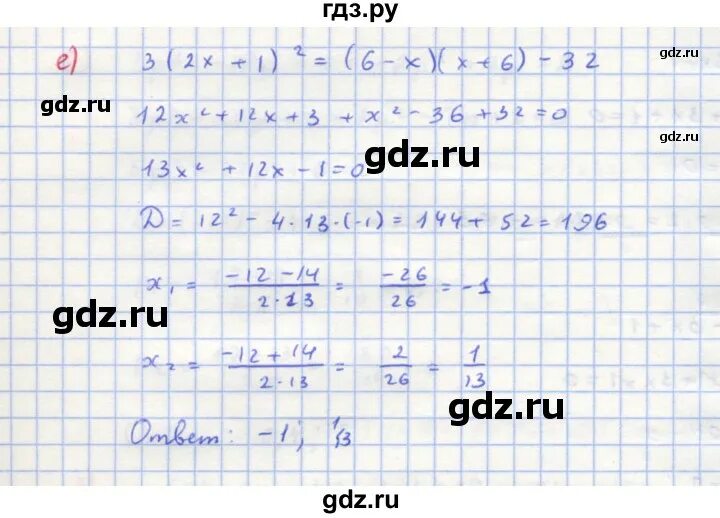 гдз.ру
е) 3(2x+1)² = (6-x)(x+6)-32
gdz.ru
gdz.ru
12x²+12x+3+x²-36+32=0
gdz.ru
13x²+12x-1=0
gdz.ru
D=12²-4·13·(-1)=144+52=196
x₁ = -12-14/2·13 = -26/26 = -1
gdz.ru
x₂ = -12+14/2·13 = 2/26 = 1/13
gdz.ru
Ответ: -1; 1/13
gdz.ru